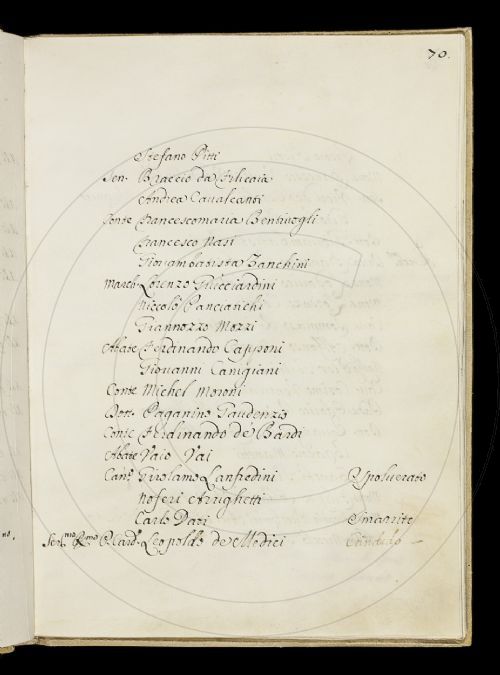 70.
Stefano Pitti
Sen. Braccio da Filicaia
Andrea Cavalcanti
Conte Francescomaria Bentivogli
Francesco Nasi
Giovambatista Zanchini
March. Lorenzo Guicciardini
Niccolò Panciatichi
Giannozzo Mozzi
Abate Ferdinando Capponi
Giovanni Canigiani
Conte Michel Moroni
Dott. Paganino Gaudenzio
Conte Ferdinando de Bardi
Abate Vaio Vai
Can.co Girolamo Lanfredini Spolverato
Noferi Arrighetti
Carlo Dati Smarrito
Ser.mo R.mo P. Card. Leopoldo de Medici Candido